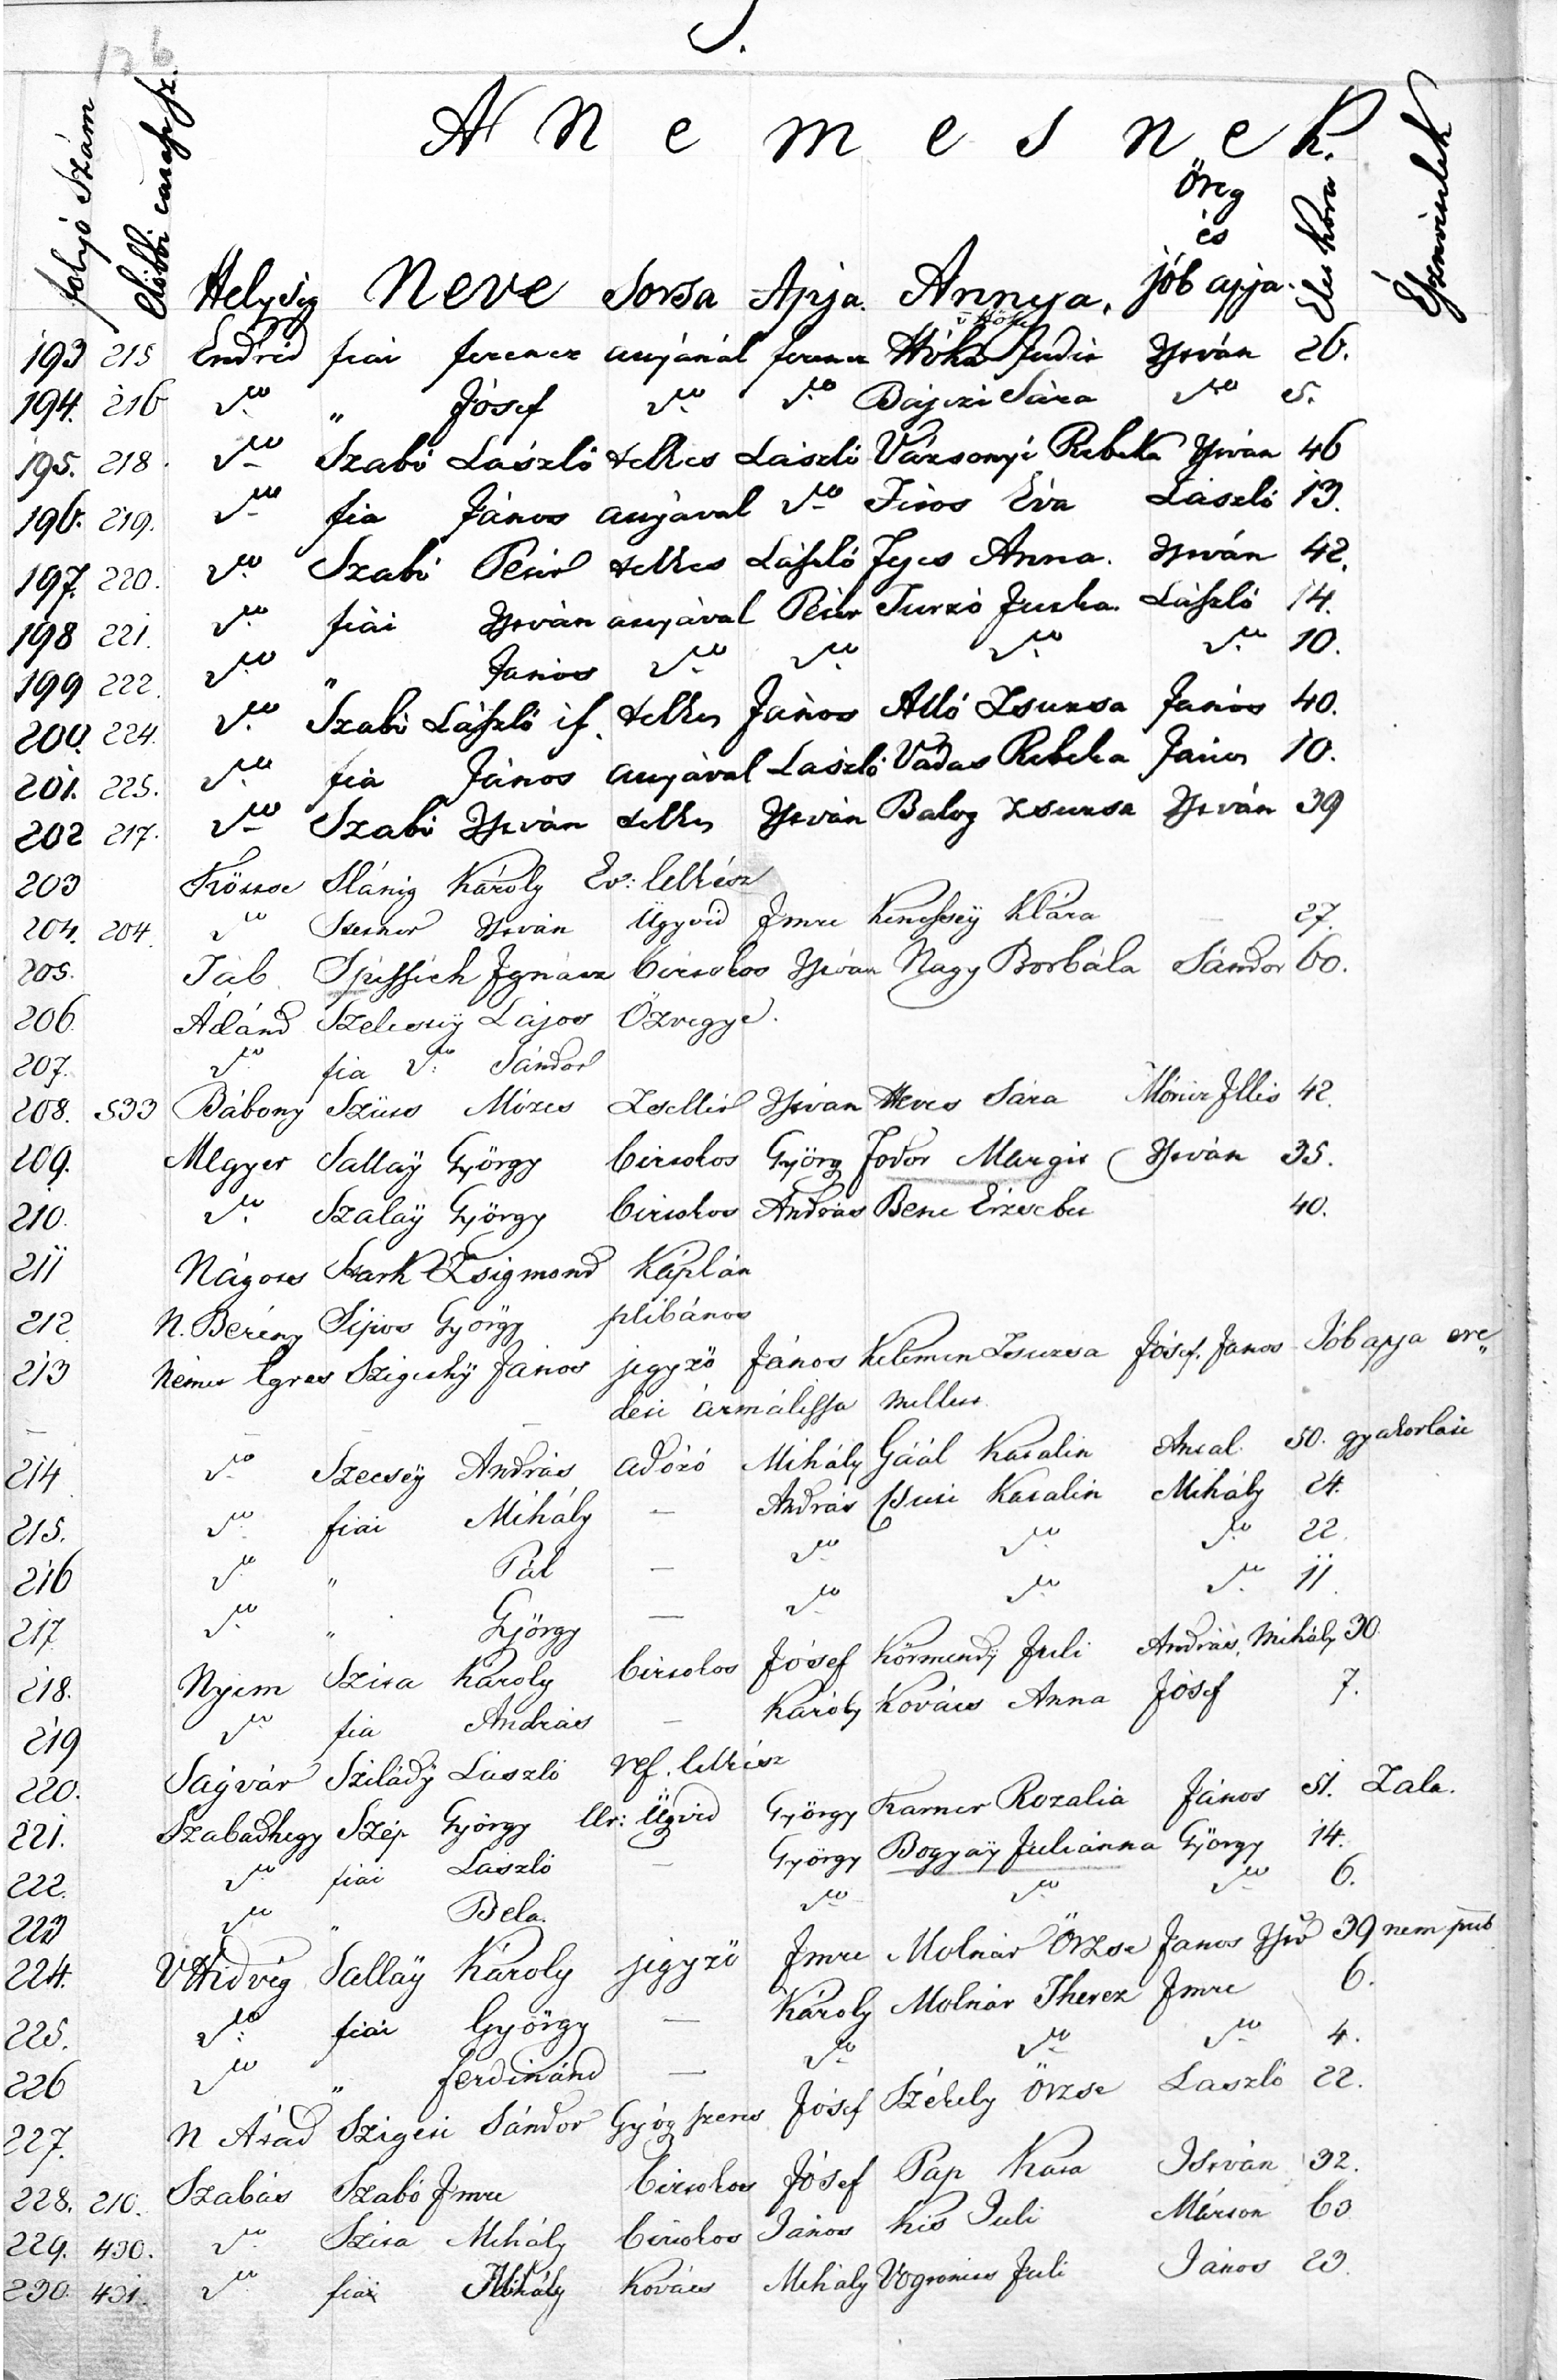 S.
A N e m e s n e k.
folyó Szám Helység Neve Sorsa Apja. Annya. Öreg és jób apja. Éles kora Észrevételek
193 215 Endréd fiai ferencz anyánál ferencz Hóka Judit István 26.
194. 216 do " Jósef do do Bajczi Sára do 5.
195. 218. do Szabó László telkes László Vázsonyi Rebeka István 46
196. 219. do fia János anyával do Éva László 13.
197. 220. do Szabó Péter telkes László Anna. István 42.
198 221. do fiái István ányával Péter Turzó Juska. László 14.
199 222. do " János do do do do 10.
200. 224. do Szabó László if. telkes János Alló Zsuzsa János 40.
201. 225. do fia János anyával László Vadas Rebeka János 10.
202 217. do Szabó István telkes István Balog Zsuzsa István 39
203 Slánig Károly Ev: lelkész
204. 204. do István Ügyvéd Imre Kenessey Klára 27.
205. Táb Spissich Ignácz birtokos István Nagy Borbála Sándor 60.
206. Ádánd Lajos Özvegye.
207. do fia do: Sándor
208. 533 Bábony Szücs Mózes Zsellér István Heves Sára Móricz Illés 42.
209. Megyer Sallaÿ György birtokos Györg Fodor Margit István 35.
210. do Szalaÿ György birtokos András Bene Erzsebet 40.
211 Nágocs Stark Zsigmond Káplán
212. N. Berény Sipos György plébános
213 Nemes Egres Szigethÿ János jegyző János Kelemen Zsuzsa Jósef. János Jób apja ere„
deti ármálissa mellett.
214 do Szecsey András adózó Mihály Gáál Katalin Antal 50. gyakorlati
215. do fiai Mihály — András Csuti Katalin Mihály 24.
216 do " Pál — do do do 22.
217 do " György — do do do 11.
218. Nyim Szita Károly birtokos Jósef Körmendÿ Juli András, Mihály 30.
219 do fia András — Károly Kovács Anna Jósef 7.
220. Ságvár Sziládÿ László ref. lelkész
221. Szabadhegy Szép György Ur: Ügvéd György Karner Rozalia János 51. Zala.
222. do fiai László — György Bogyaÿ Juliánna György 14.
223 do " Bela. do do do 6.
224. V Hidvég Sallaÿ Károly jegyző Imre Molnár Örzse János Istv 39 nem pub
225. do fiai György — Károly Molnár Therez Imre 6.
226 do " ferdinánd — do do do 4.
227. N Átád Szigeti Sándor Gyógszeres Jósef Székely Örzse László 22.
228. 210. Szabás Szabó Imre birtokos Jósef Pap Kata István 32.
229. 430. do Szita Mihály birtokos János Kis Juli Márton 63
230. 431. do fiai Mihály Kovács Mihály Vogronics Juli János 23.